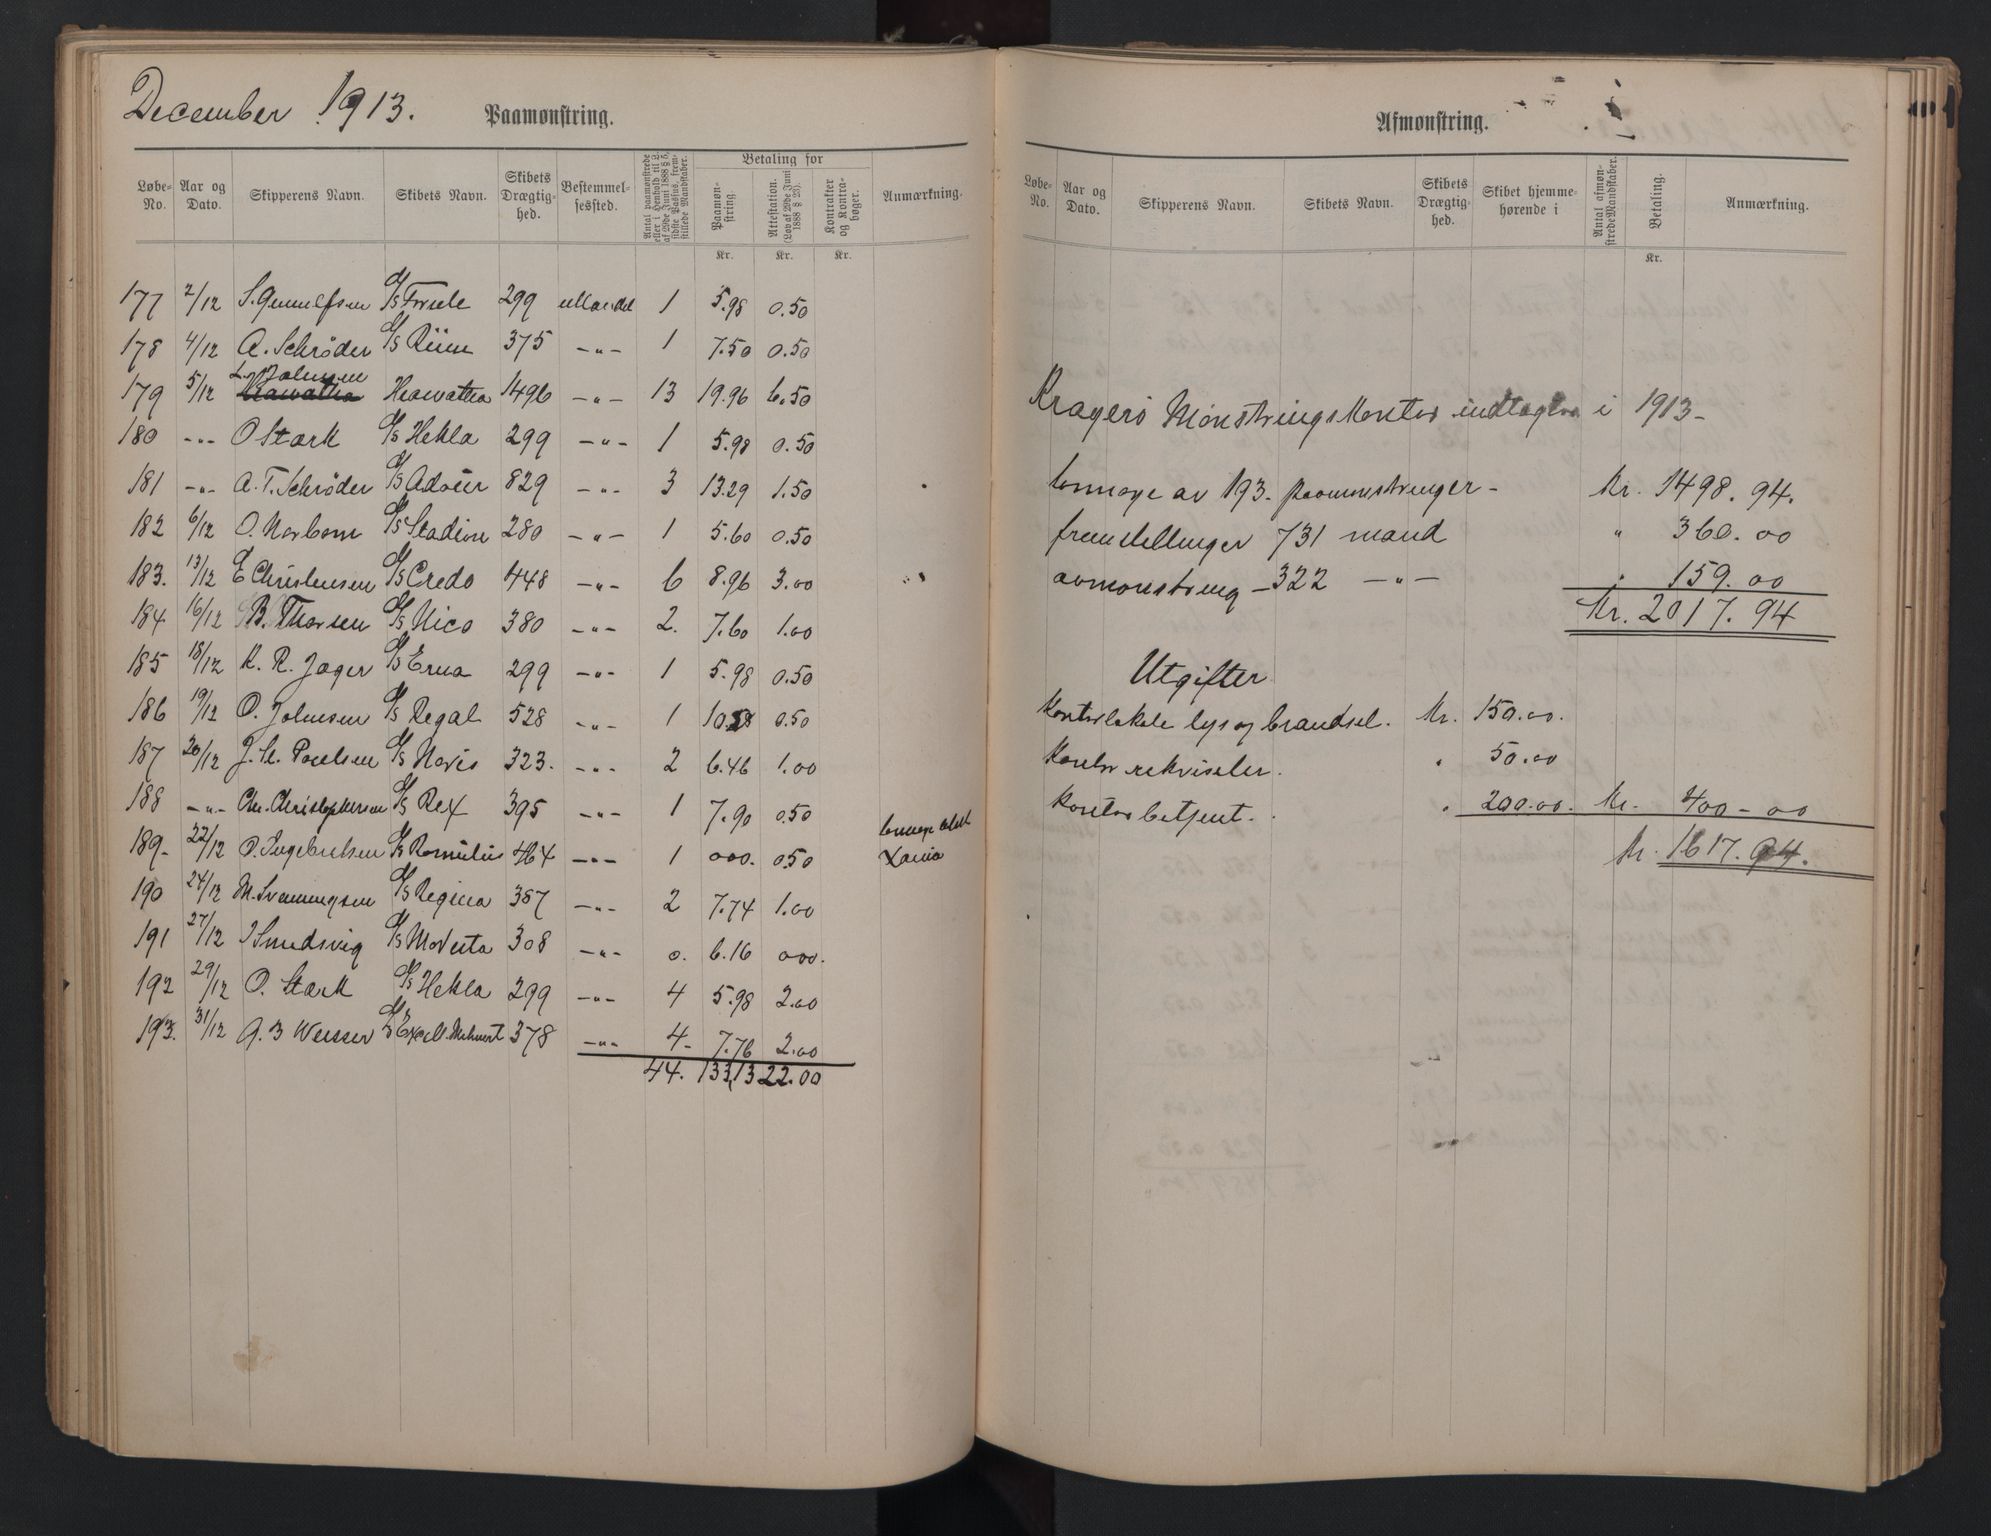 December 1913. Paamønstring.
Løbe-No. Aar og Dato. Skipperens Navn. Skibets Navn. Skibets Drægtig-hed. Bestemmel-sessted. Antal paamønstrede eller i Henhold til L. af 29de Juni 1888 § 5, sidste Passus, frem-stillede Mandskaber. Betaling for Paamøn-string. Attestation. (Lov af 29de Juni 1888 § 23). Kontrakter og Kontra-bøger. Anmærkning.
Kr. Kr. Kr.
177 2/12 S. Gunulfsen S/S 299 utlandet 1 5.98 0.50
178 4/12 A. Schrøder S/S 375 -"- 1 7.50 0.50
L. Johnsen
179 5/12 Heawatha Heawatha 1496 -"- 13 19.96 6.50
180 -"- O Stark S/S Hekla 299 -"- 1 5.98 0.50
181 -"- A. T. Schrøder S/S 829 -"- 3 13.29 1.50
182 6/12 O. Norbom S/S Stadion 280 -"- 1 5.60 0.50
183. 13/12 E Christensen S/S Credo 448 -"- 6 8.96 3.00
184 16/12 B. Thorsen S/S Nico 380 -"- 2. 7.60 1.00
185 18/12 K. R. Jager S/S Erna 299 -"- 1 5.98 0.50
186 19/12 O. Johnsen S/S Regal 528 -"- 1 10.58 0.50
187 20/12 J. H. Poulsen S/S Noris 323. -"- 2 6.46 1.00
188 -"- Chr. Christophersen S/S Rex 395 -"- 1 7.90 0.50
189- 22/12 O. Ingebretsen S/S Romulus 464 -"- 1 000. 050 tonnage
190 24/12 M. Svenningsen S/S Regina 387 -"- 2 7.74 1.00
191 27/12 J Smedsvig S/S Modesta 308 -"- 0. 6.16 000.
192 29/12 O. Stark S/S Hekla 299 -"- 4 5.98 2.00
193. 31/12 A. B Weisser S/S Excell. Mehnert 378 -"- 4- 7.76 2.00
44. 133,13 22.00
Afmønstring.
Løbe-No. Aar og Dato. Skipperens Navn. Skibets Navn. Skibets Drægtig-hed. Skibet hjemme-hørende i Antal afmøn-strede Mandskaber. Betaling. Anmærkning.
Kr.
Kragerö Mönstringskontor indtægter i 1913-
tonnage av 193. paamønstringer - Kr. 1498.94.
fremstillinger 731 mand " 360.00
avmönstring - 322 -"- " 159.00
Kr. 2017.94
Utgifter
Kontorlokale lys og brændsel. Kr. 150.00.
Kontor rekvisiter. " 50.00
Kontorbetjent. " 200.00. Kr. 400-00
Kr. 1617.94.